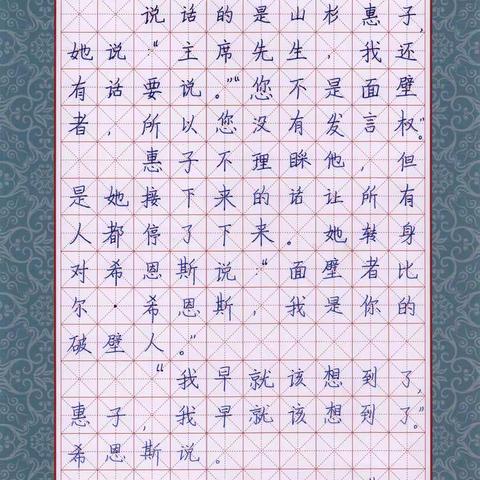 说话的是山杉惠子,
她说:“主席先生,我还
有话要说。”“您不是面壁
者,所以您没有发言权。”
惠子不理睬他,但
是她接下来的话让所有
人都停了下来。她转身
对希恩斯说:“面壁者比
尔·希恩斯,我是你的
破壁人。”
“我早就该想到了,
惠子,我早就该想到了。”
希恩斯说。
“